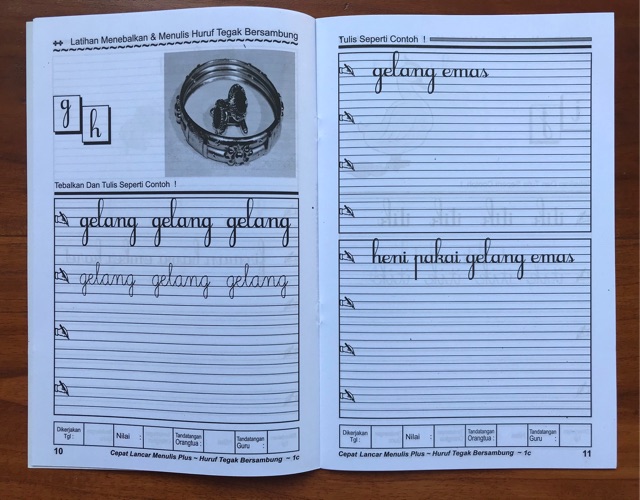 Latihan Menebalkan & Menulis Huruf Tegak Bersambung
g
h
Tebalkan Dan Tulis Seperti Contoh !
gelang gelang gelang
gelang gelang gelang
Dikerjakan Tgl : Nilai : Tandatangan Orangtua : Tandatangan Guru :
10 Cepat Lancar Menulis Plus ~ Huruf Tegak Bersambung ~ 1c
Tulis Seperti Contoh !
gelang emas
heni pakai gelang emas
Dikerjakan Tgl : Nilai : Tandatangan Orangtua : Tandatangan Guru :
Cepat Lancar Menulis Plus ~ Huruf Tegak Bersambung ~ 1c 11